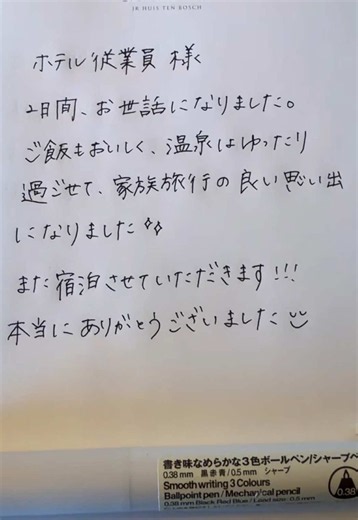 JR HUIS TEN BOSCH
ホテル従業員 様
2日間、お世話になりました。
ご飯もおいしく、温泉はゆったり
過ごせて、家族旅行の良い思い出
になりました
また宿泊させていただきます!!!
本当にありがとうございました
書き味なめらかな3色ボールペン/シャープペ
0.38 mm 黒赤青/0.5 mm シャープ
Smooth writing 3 Colours
Ballpoint pen / Mechanical pencil
0.38 mm Black Red Blue / Lead size: 0.5 mm
0.38